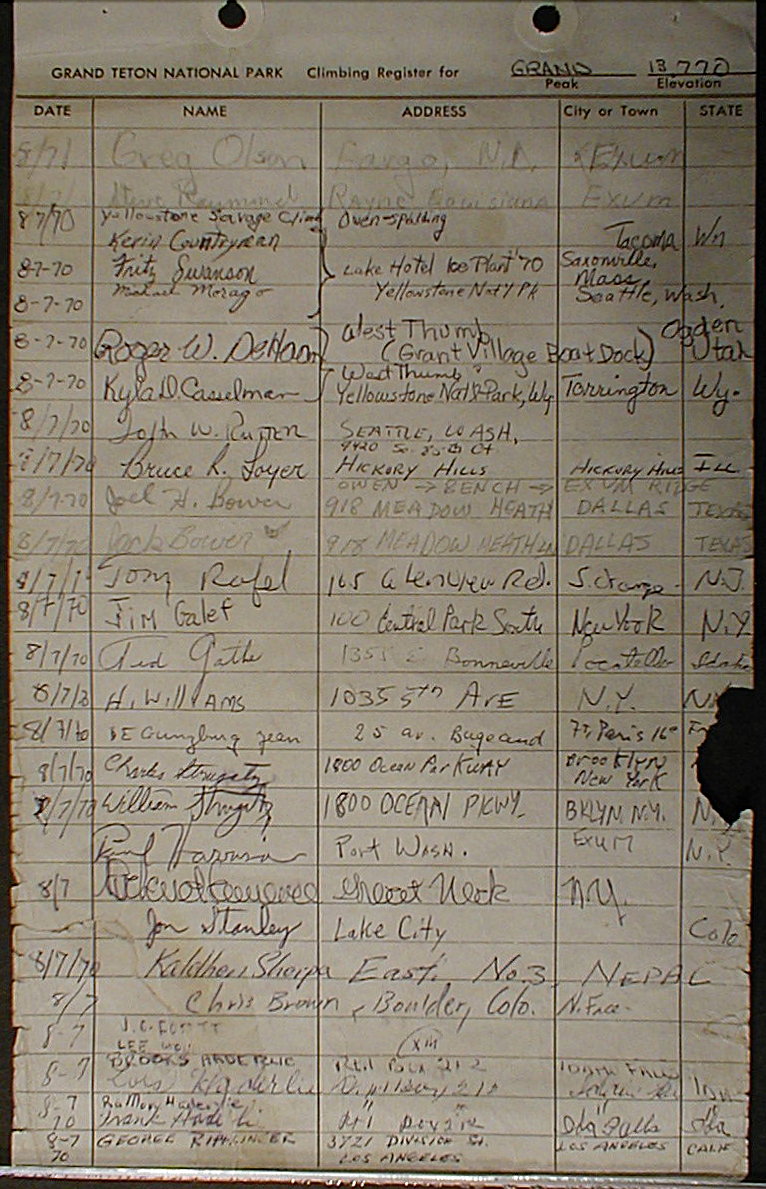 GRAND TETON NATIONAL PARK Climbing Register for GRAND 13,770
Peak Elevation
DATE NAME ADDRESS City or Town STATE
8/71 Greg Olson Fargo, N.D. Exum
Steve Raymond Rayne Louisiana Exum
8/7/70 Yellowstone Savage Climb Owen-Spalding
Kevin Countryman Tacoma Wn
8-7-70 Fritz Swanson Lake Hotel Ice Plant '70 Saxonville, Mass
8-7-70 Michael Morago Yellowstone Nat'l Pk Seattle, Wash.
8-7-70 Roger W. DeHaan West Thumb (Grant Village Boat Dock) Ogden Utah
8-7-70 Kyla D. Casselman West Thumb Yellowstone Nat'l Park, Wy Torrington Wy.
8/7/70 John W. Rutter SEATTLE, WASH.
8/7/70 Bruce R. Loyer 9420 So. 85th Ct HICKORY HILLS HICKORY HILLS ILL
OWEN → BENCH → EXUM RIDGE
8/7-70 Joel H. Bower 918 MEADOW HEATH DALLAS TEXAS
8/7/70 Jack Bower 918 MEADOW HEATH LN DALLAS TEXAS
8/7/7 Tony Rafel 165 Glenview Rd. S. Orange N.J.
8/7/70 JIM Galef 100 Central Park South New York N.Y.
8/7/70 Ted 1355 E Bonneville Pocatello Idaho
8/7/70 H. WILLIAMS 1035 5th AVE N.Y.
8/7/70 DE Gunzburg Jean 25 av. Bugeaud 75 Paris 16e
8/7/70 Charles Strugatz 1800 Ocean Parkway Brooklyn New York
8/7/70 William Strugatz 1800 OCEAN PKWY. BKLYN N.Y.
Paul Harrison Port WASH. EXUM N.Y.
8/7 Great Neck N.Y.
Jon Stanley Lake City Colo
8/7/70 Kaldhen Sherpa East. No. 3, NEPAL
8/7 Chris Brown, Boulder, Colo. N. Face
8-7
LEE
BROOKS HADERLIE
8-7 Haderlie
8-7 70 Frank Ida Falls Ida
8-7 70 GEORGE 3721 DIVISION St. LOS ANGELES LOS ANGELES CALIF